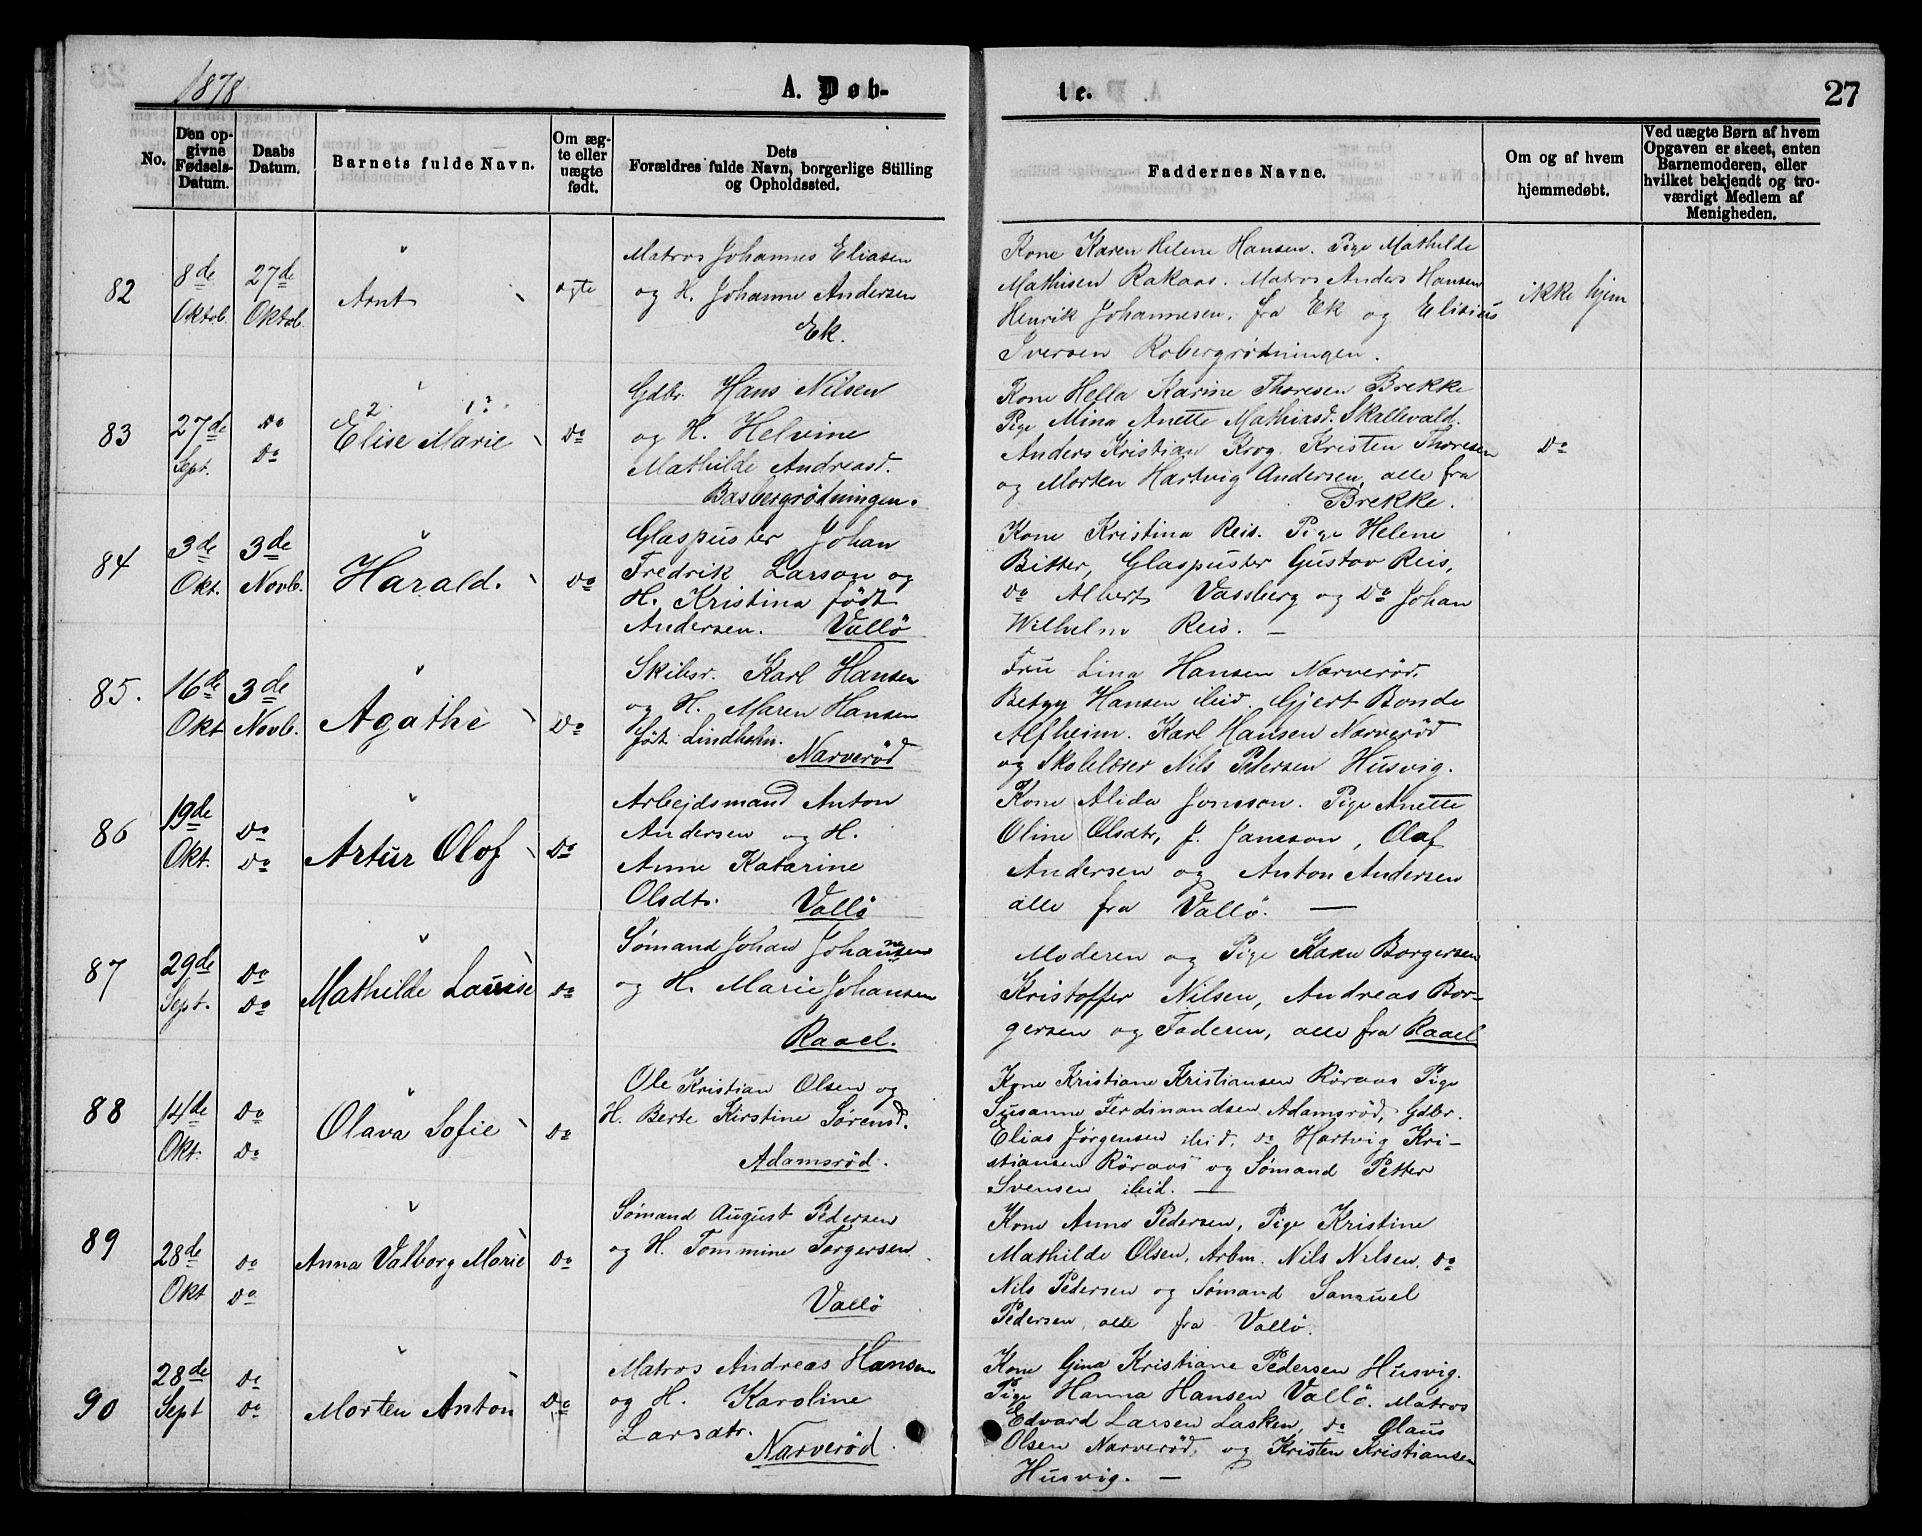 1878
A. Døb-
te.
27
No.
Den op-
givne
Fødsels-
Datum.
Daabs
Datum.
Barnets fulde Navn.
Om æg-
te eller
uægte
født.
Dets
Forældres fulde Navn, borgerlige Stilling
og Opholdssted.
Faddernes Navne.
Om og af hvem
hjemmedøbt.
Ved uægte Børn af hvem
Opgaven er skeet, enten
Barnemoderen, eller
hvilket bekjendt og tro-
værdigt Medlem af
Menigheden.
82
8de
Oktob.
27de
Oktob.
Arnt
ægte
Matros Johannes Eliasen
og H. Johanne Andersen
Ek.
Kone Karen Helene Hansen. Pige Mathilde
Mathisen Rakaas. Matros Anders Hansen
Henrik Johannesen, fra Ek og Elisius
Iversen Robergrødningen.
ikke hjem
83
27de
Sept.
Do
Do
2 1?
Elise Marie
Do
Gdbr. Hans Nilsen
og H. Helvine
Mathilde Andreasd.
Basbergrødningen.
Kone Hella Karine Thoresen Brekke
Pige Mina Anette Mathiasd. Skallevald.
Anders Kristian Krog. Kristen Thoresen
og Morten Hartvig Andersen, alle fra
Brekke.
Do
84
3de
Okt.
3de
Novb.
Harald.
Do
Glaspuster Johan
Fredrik Larson og
H. Kristina født
Andersen. Vallö
Kone Kristina Reis. Pige Helene
Bitter, Glaspuster Gustav Reis,
Do Albert Vassberg og Do Johan
Wilhelm Reis. —
85.
16de
Okt
3de
Novb.
Agathe
Do
Skibsr. Karl Hansen
og H. Maren Hansen
født Lindholm.
Narverød
Fru Lina Hansen Narverød.
Betzy Hansen ibid. Gjert Bonde
Alfheim. Karl Hansen Narverød
og Skolelærer Nils Pedersen Husvig.
86
19de
Okt.
Do
Do
Artur Olof
Do
Arbejdsmand Anton
Andersen og H.
Anne Katarine
Olsdtr. Vallö
Kone Alida Jonsson. Pige Anette
Oline Olsdtr, J. Janeson, Olaf
Andersen og Anton Andersen
alle fra Vallö. —
87
29de
Sept.
Do
Do
Mathilde Louise
Do
Sømand Johan Johannesen
og H. Marie Johansen
Raael.
Moderen og Pige Karen Borgersen
Kristoffer Nilsen, Andreas Bor-
gersen og Faderen, alle fra Raael
88
14de
Okt.
Do
Do
Olava Sofie
Do
Ole Kristian Olsen og
H. Berte Kirstine Sørensd.
Adamsrød.
Kone Kristiane Kristiansen Röraas Pige
Susanne Ferdinandsen Adamsrød, Gdbr.
Elias Jørgensen ibid. Do Hartvig Kri-
stiansen Röraas og Sømand Petter
Svensen ibid. —
89
28de
Okt
Do
Do
Anna Valborg Marie
Do
Sømand August Pedersen
og H. Tommine Torgersen
Vallö
Kone Anne Pedersen, Pige Kristine
Mathilde Olsen, Arbm. Nils Nilsen, Do
Nils Pedersen og Sømand Samuel
Pedersen, alle fra Vallö.
90
28de
Sept
Do
Do
Morten Anton
Do
Matros Andreas Hansen
og H. Karoline
Larsdtr.
Narverød
Kone Gina Kristiane Pedersen Husvig.
Pige Hanna Hansen Vallö. Matros
Edvard Larsen Lasken, Do Olaus
Olsen Narverød, og Kristen Kristiansen
Husvig. —